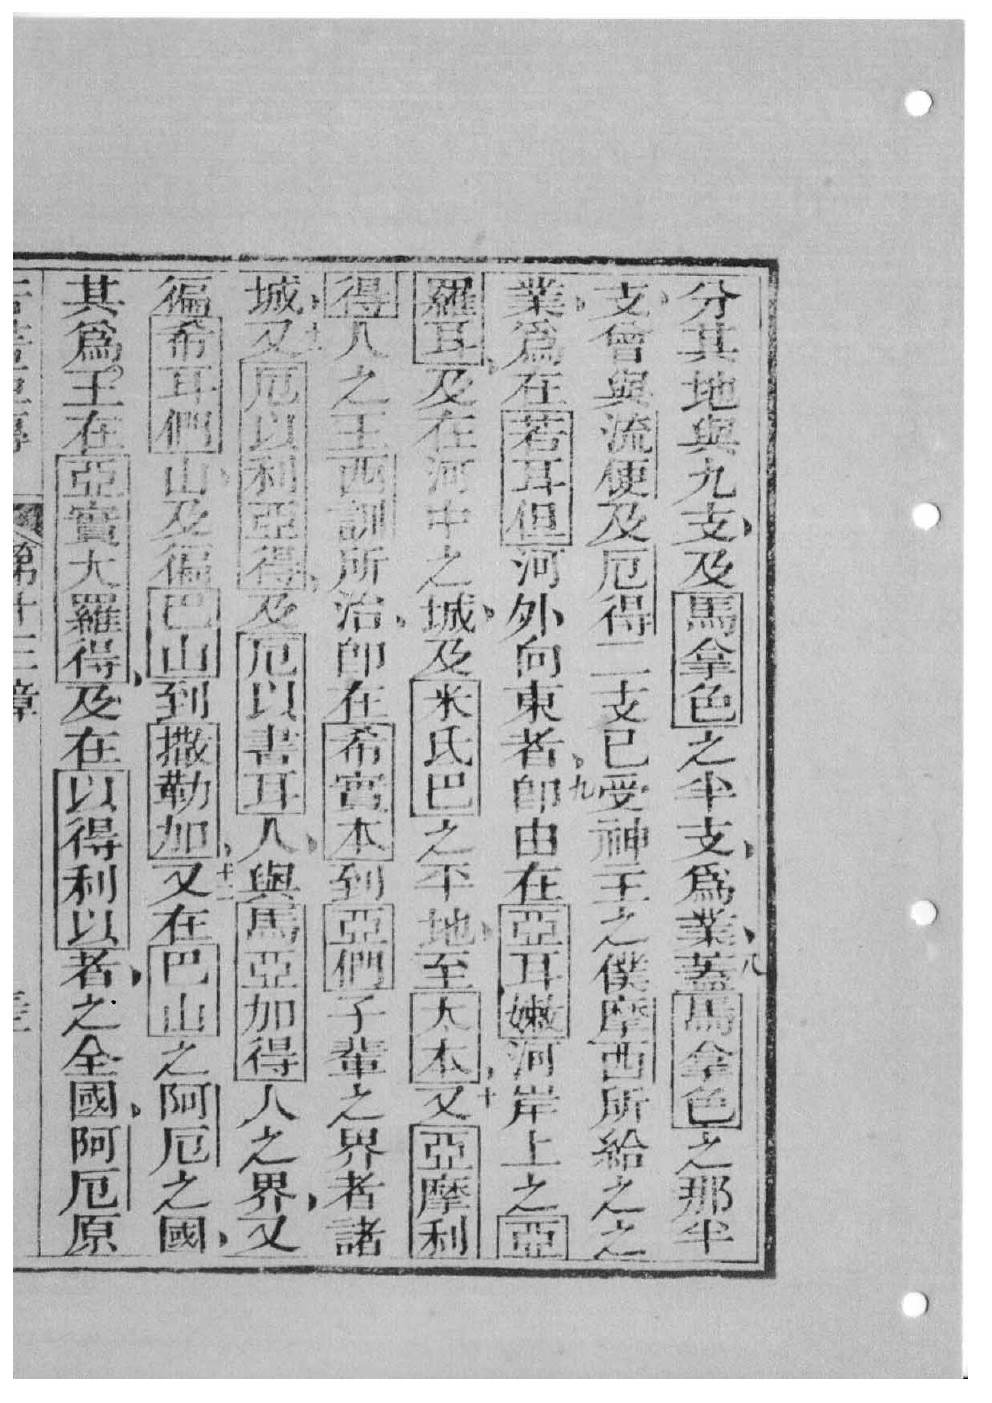 分其地與九支及馬拿色之半支爲業八蓋馬拿色之那半
支曾與流便及厄得二支已受神王之僕摩西所給之之
業爲在若耳但河外向東者九卽由在亞耳嫩河岸上之亞
羅耳及在河中之城及米氏巴之平地至大本十又亞摩利
得人之王西訓所治卽在希實本到亞們子輩之界者諸
城十一又厄以利亞得及厄以書耳人與馬亞加得人之界又
徧希耳們山及徧巴山到撒勒加十二又在巴山之阿厄之國
其爲王在亞實大羅得及在以得利以者之全國阿厄原
第十三章